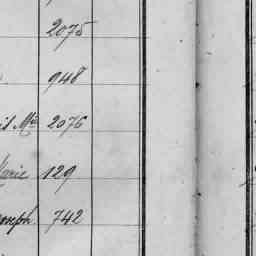 2075
948
Mie 2076
Marie 129
Joseph. 742